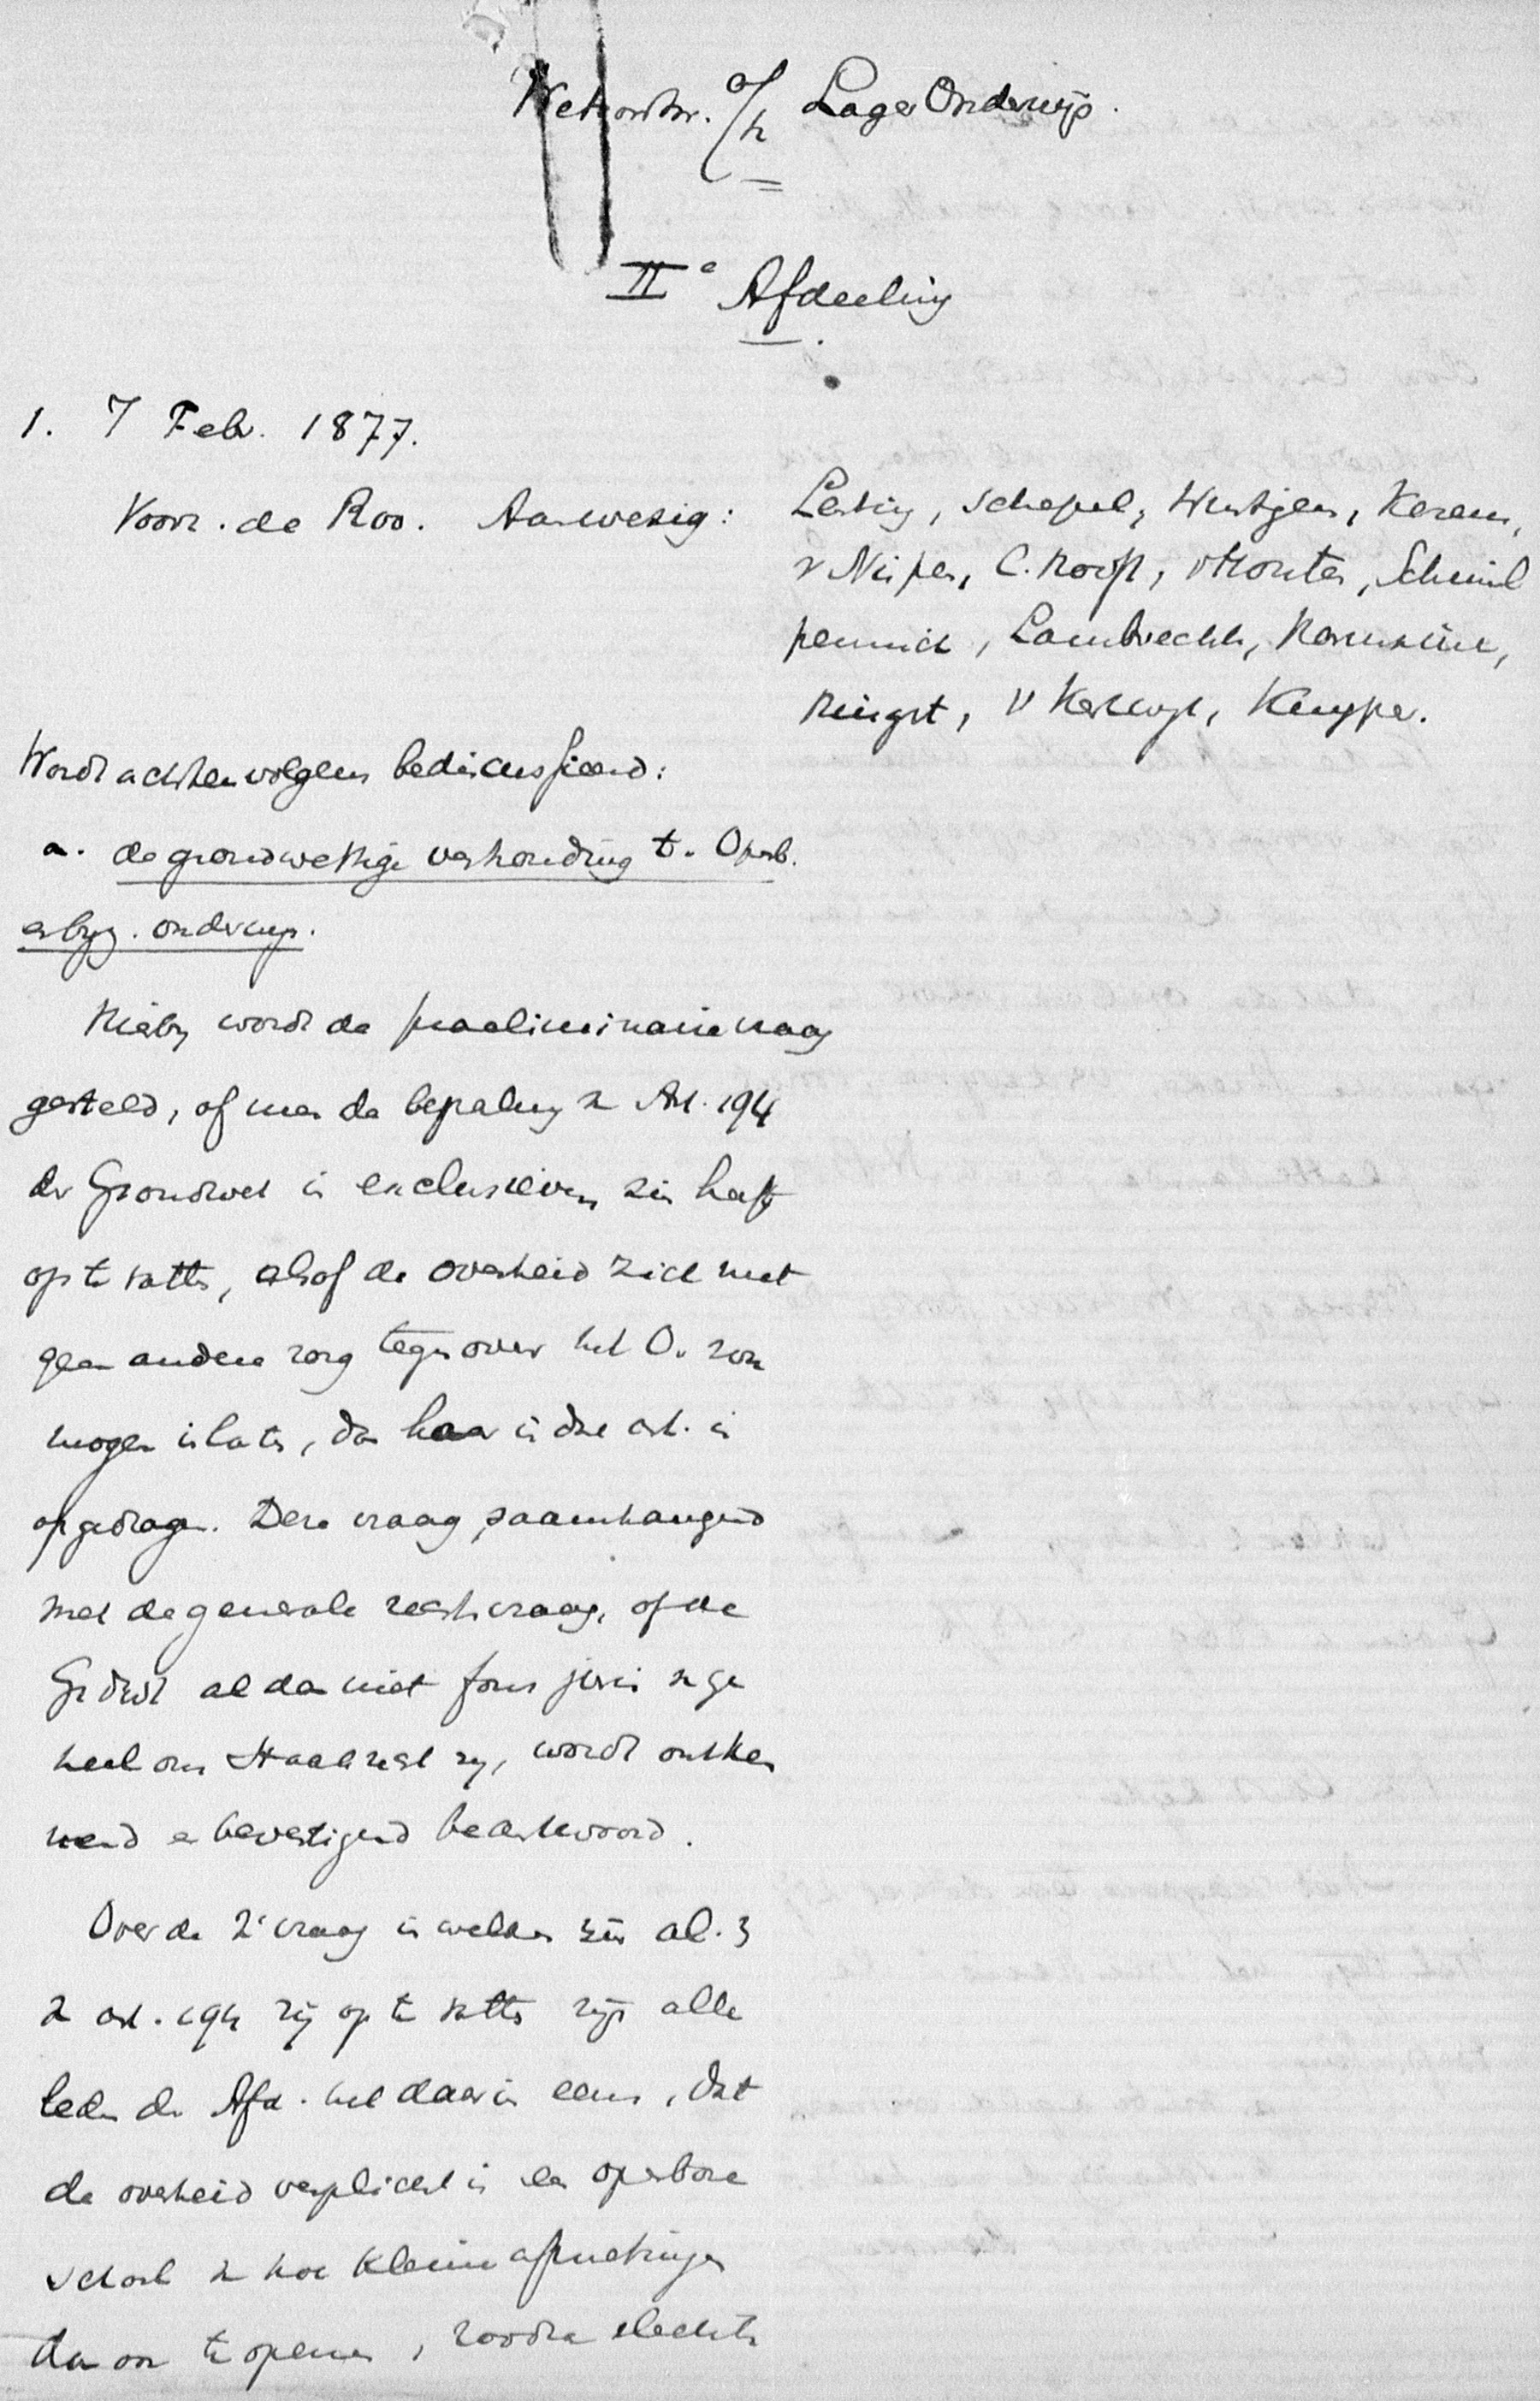 Wetontw. o/h Lager Onderwijs.
IIe Afdeeling
1. 7 Feb. 1877.
Voorz. de Roo. Aanwezig:
Lenting, Schepel, Wintgens, Kerens,
v Nispen, C. , v Houten, Schimmel
pennick, Lambrechts,
, v Kerkwyk, Kuyper.
Wordt achtervolgens bediscussieerd:
a. de grondwettige verhouding v. Openb.
en byz. onderwys.
Hierby wordt de praeliminaire vraag
gesteld, of men de bepaling v Art. 194
der Grondwet in exclusieven zin heeft
op te vatten, alsof de overheid zich met
geen andere zorg tegenover het O. zou
mogen inlaten, dan haar in dat art. is
opgedragen. Deze vraag, saamhangend
met de generale rechtsvraag, of de
Grdwt al dan niet fons juris v ge
heel ons Staatsrecht zy, wordt ontken
nend en bevestigend beantwoord.
Over de 2e vraag in welken zin al. 3
v art. 194 zij op te vatten zijn alle
leden der Afd. het daarin eens, dat
de overheid verplicht is een openbare
school v hoe kleine afmetingen
dan ook te openen, zoodra slechts